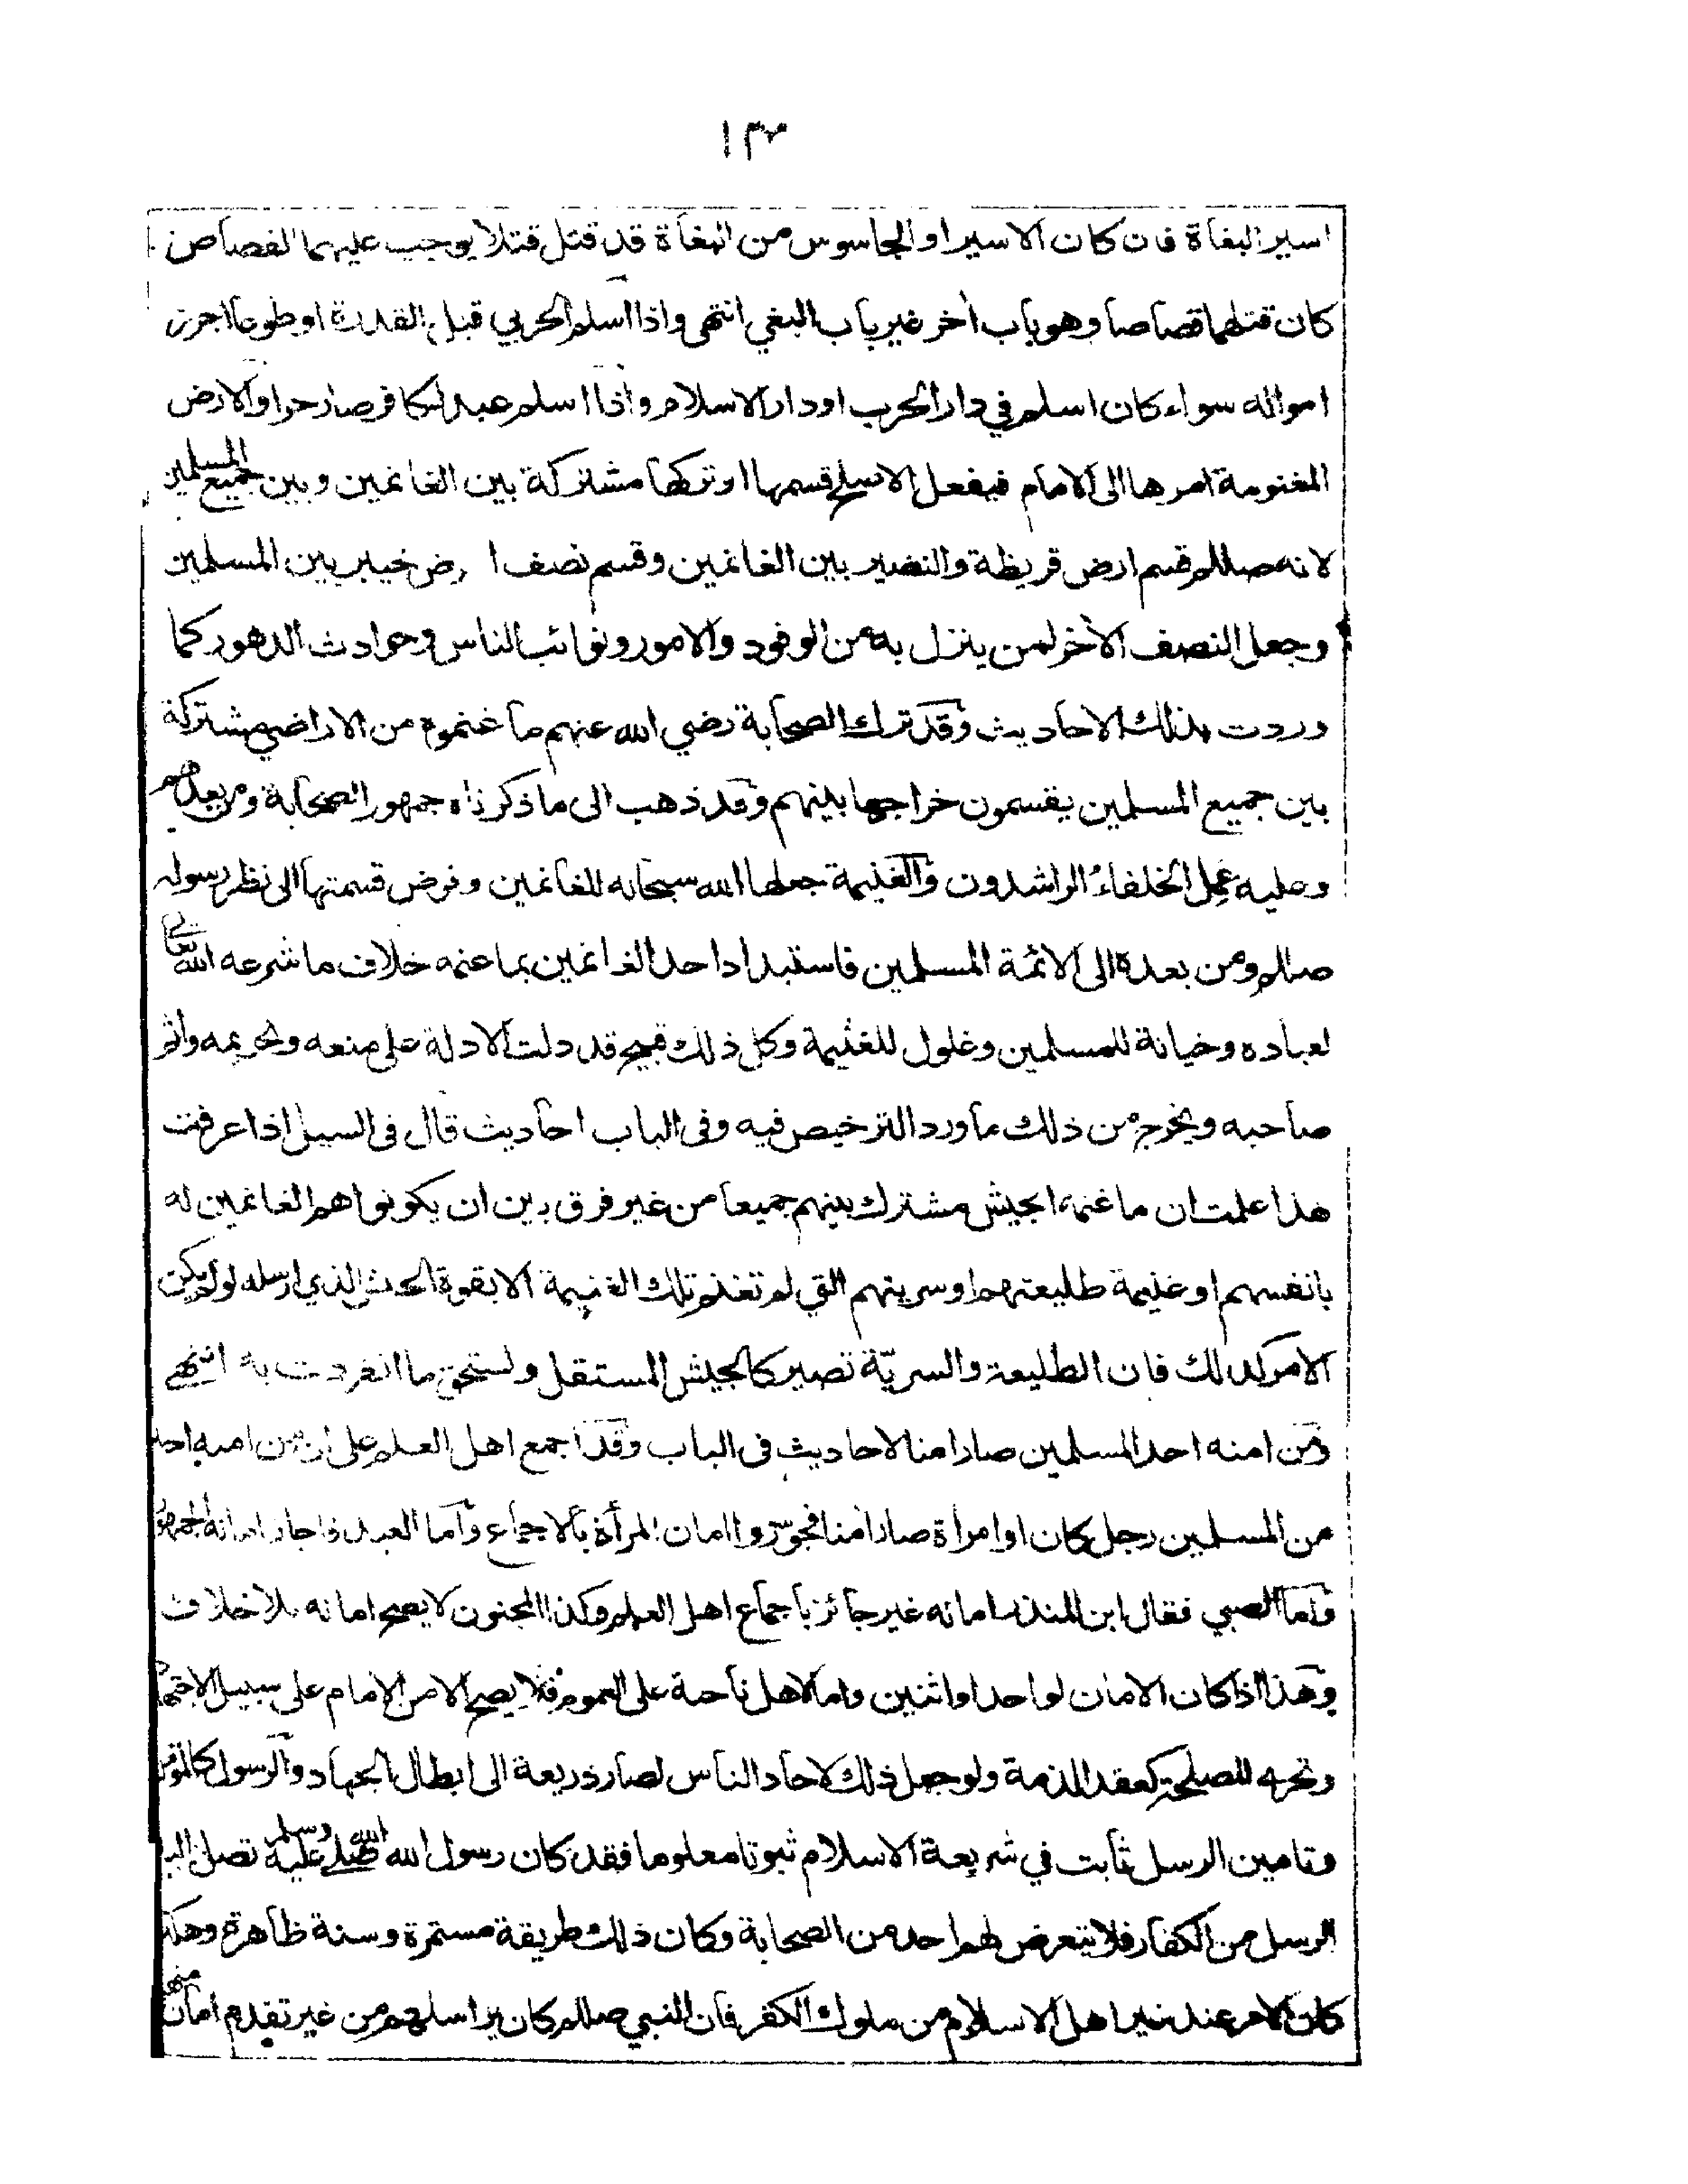 ١٣٢
اسير البغاة فان كان الاسير او الجاسوس من البغاة قد قتل قتلا يوجب عليهما القصاص
كان قتلهما قصاصا وهو باب أخر غير باب البغي انتهى واذا اسلم الحربي قبل القدرة او طوعا احرز
امواله سواء كان اسلم في دار الحرب اودار الاسلام واذا اسلم عبد لكافر صار حرا والارض
المغنومة امرها الى الامام فيفعل الاصلح قسمها او تركها مشتركة بين الغانمين وبين جميع المسلمين
لانه صللم قسم ارض قريظة والنضير بين الغانمين وقسم نصف ارض خيبر بين المسلمين
وجعل النصف الأخر لمن ينزل به من الوفود والامور ونوائب الناس وحوادث الدهور كما
وردت بذلك الاحاديث وقد ترك الصحابة رضي الله عنهم ما غنموه من الاراضي مشتركة
بين جميع المسلمين يقسمون خراجها بينهم وقد ذهب الى ما ذكرناه جمهور الصحابة ومن بعدهم
وعليه عمل الخلفاء الراشدون والغنيمة جعلها الله سبحانه للغانمين وفرض قسمتها الى نظر رسوله
صللم ومن بعده الى الائمة المسلمين فاستبداد احد الغانمين بما غنمه خلاف ما شرعه الله تعالى
لعباده وخيانة للمسلمين وغلول للغنيمة وكل ذلك قبيح قد دلت الادلة على منعه وتحريمه واثم
صاحبه ويخرج من ذلك ما ورد الترخيص فيه وفى الباب احاديث قال فى السيل اذا عرفت
هذا علمت ان ما غنمه الجيش مشترك بينهم جميعا من غير فرق بين ان يكونوا هم الغانمين له
بانفسهم او غنيمة طليعتهم او سريتهم التي لم تغنم تلك الغنيمة الا بقوة الجيش الذي ارسله لو لم يكن
الامر كذلك فان الطليعة والسريّة تصير كالجيش المستقل وتستحق ما انفردت به انتهى
ومن امنه احد المسلمين صار امنا لاحاديث فى الباب وقد اجمع اهل العلم على ان من امنه احد
من المسلمين رجل كان او امرأة صار أمنا فجوّزوا امان المرأة بالاجماع وأما العبد فاجاز امانه الجمهور
وأما الصبي فقال ابن المنذر امانه غير جائز باجماع اهل العلم وكذا المجنون لا يصح امانه بلا خلاف
وهذا اذا كان الامان لواحد او اثنين واما لاهل ناحية على العموم فلا يصح الا من الامام على سبيل الاجتهاد
وتحري المصلحة كعقد الذمة ولو جعل ذلك لاحاد الناس لصار ذريعة الى ابطال الجهاد والرسول كالمؤمن
وتامين الرسل ثابت في شريعة الاسلام ثبوتا معلوما فقد كان رسول الله صلى الله عليه وسلم تصل اليه
الرسل من الكفار فلا يتعرض لهم احد من الصحابة وكان ذلك طريقة مستمرة وسنة ظاهرة وهكذا
كان الامر عند غير اهل الاسلام من ملوك الكفر فان النبي صللم كان يراسلهم من غير تقدم امان منهم